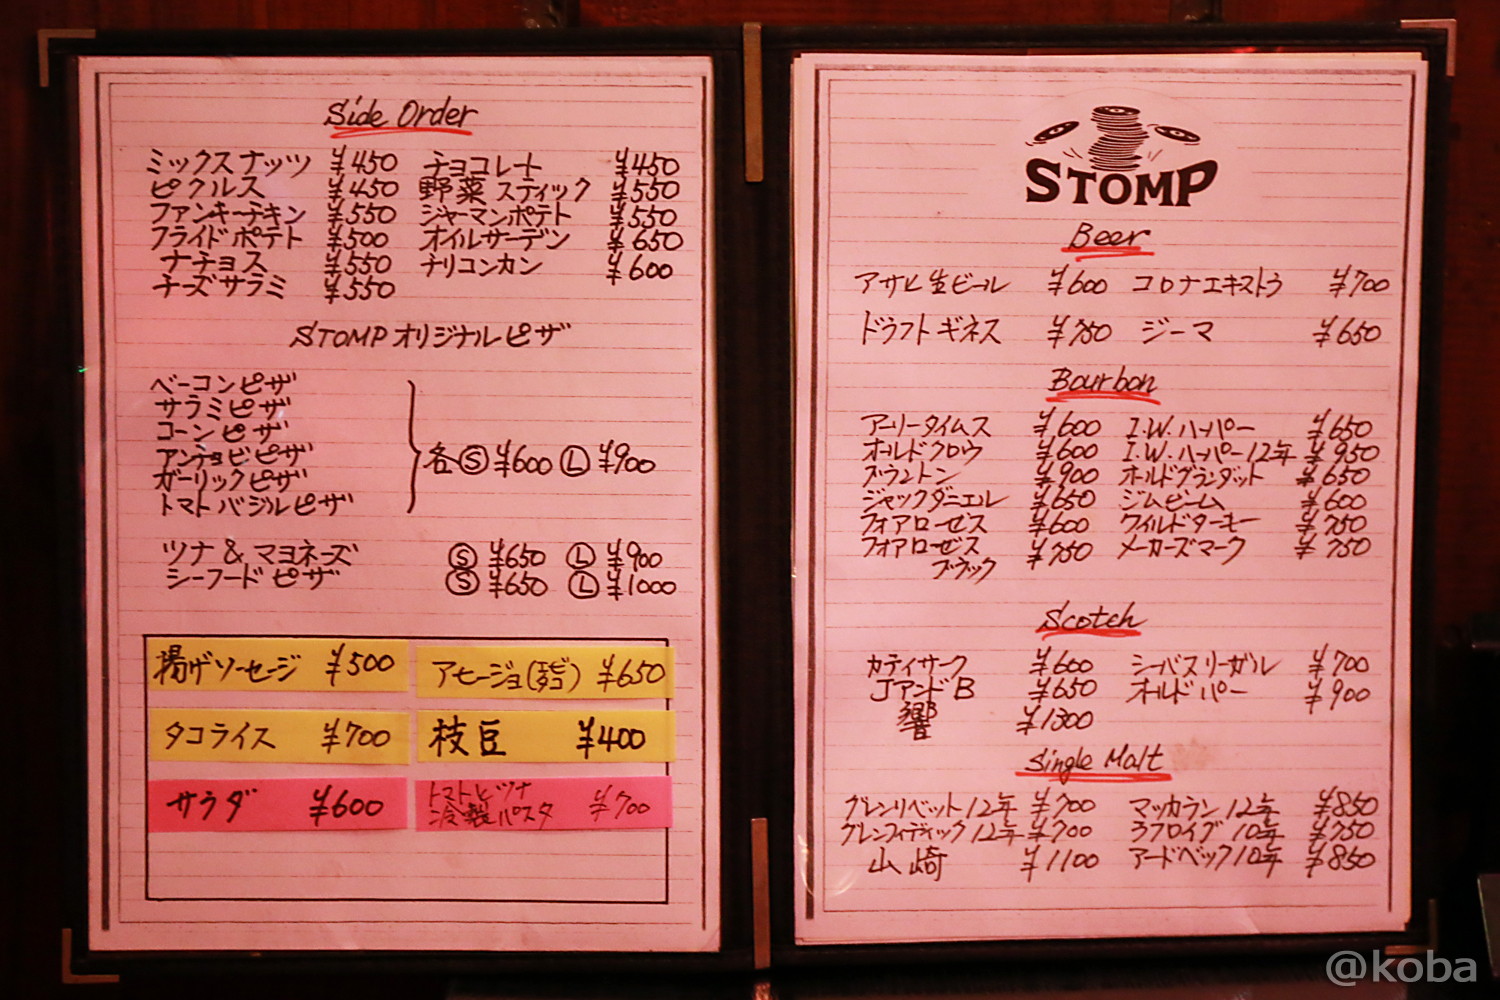 Side Order
ミックスナッツ ¥450 チョコレート ¥450
ピクルス ¥450 野菜スティック ¥550
ファンキーチキン ¥550 ジャーマンポテト ¥550
フライドポテト ¥500 オイルサーデン ¥650
ナチョス ¥550 ナリコンカン ¥600
チーズサラミ ¥550
STOMPオリジナルピザ
ベーコンピザ
サラミピザ
コーンピザ
アンチョビピザ
ガーリックピザ
トマトバジルピザ
各Ⓢ¥600 Ⓛ¥900
ツナ&マヨネーズ Ⓢ¥650 Ⓛ¥900
シーフードピザ Ⓢ¥650 Ⓛ¥1000
揚げソーセージ ¥500 アヒージョ(エビ タコ) ¥650
タコライス ¥700 枝豆 ¥400
サラダ ¥600 トマトとツナ
冷製パスタ ¥700
STOMP
Beer
アサヒ生ビール ¥600 コロナエキストラ ¥700
ドラフトギネス ¥750 ジーマ ¥650
Bourbon
アーリータイムス ¥600 I.W.ハーパー ¥650
オールドクロウ ¥600 I.W.ハーパー12年 ¥950
ブラントン ¥900 オールドグランダット ¥650
ジャックダニエル ¥650 ジムビーム ¥600
フォアローゼス ¥600 ワイルドターキー ¥750
フォアローゼス ¥750 メーカーズマーク ¥750
ブラック
Scotch
カティサーク ¥600 シーバスリーガル ¥700
JアンドB ¥650 オールドパー ¥900
響 ¥1300
Single Malt
グレンリベット12年 ¥700 マッカラン12年 ¥850
グレンフィディック12年 ¥700 ラフロイグ10年 ¥750
山崎 ¥1100 アードベック10年 ¥850
@koba